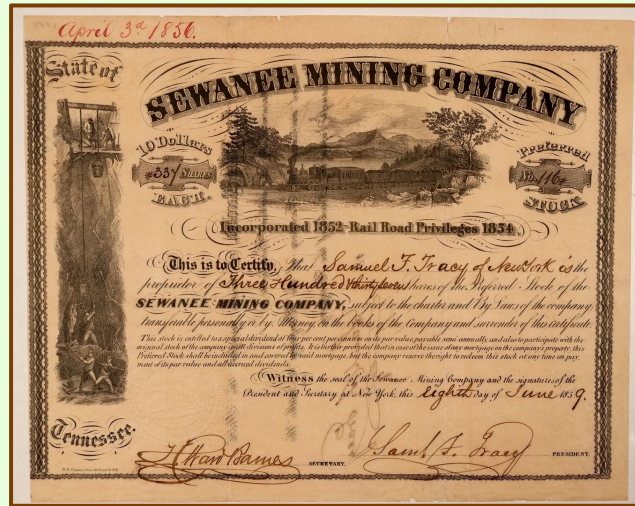 April 3d 1856.
State of
SEWANEE MINING COMPANY
10 Dollars
#337 SHARES
EACH.
Preferred
No. 116
STOCK.
Incorporated 1852-Rail Road Privileges 1854.
This is to Certify, That Samuel F. Tracy of New York is the
proprietor of Three Hundred thirty seven shares of the Preferred Stock of the
SEWANEE MINING COMPANY, subject to the charter and By Laws of the company,
transferable personally or by Attorney, on the books of the Company and surrender of this certificate.
This stock is entitled to a special dividend of per cent per annum on its par value payable semi annually, and also to participate with the
original stock of the company in all divisions of profits. It is further provided that in case of the issue of any mortgage on the company's property, this
Preferred Stock shall be included in and covered by said mortgage, but the company reserve the right to redeem this stock at any time on pay
ment of its par value and all accrued dividends.
Witness the seal of the Sewanee Mining Company and the signatures of the
President and Secretary at New York, this Eighth day of June 1859.
Tennessee.
H. Ward Barnes SECRETARY.
Saml. F. Tracy PRESIDENT.